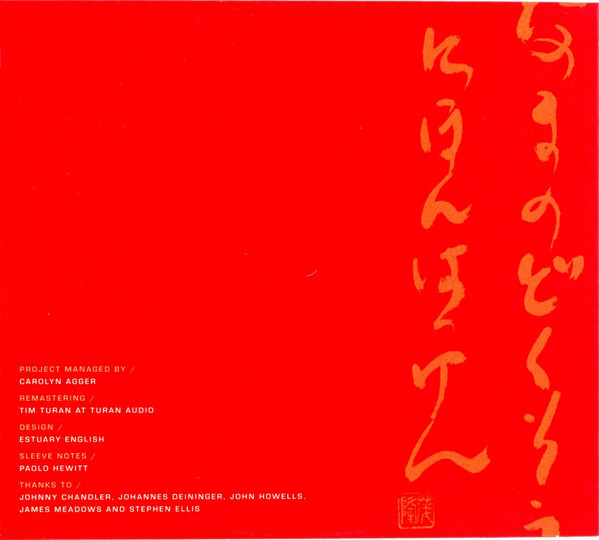 PROJECT MANAGED BY /
CAROLYN AGGER
REMASTERING /
TIM TURAN AT TURAN AUDIO
DESIGN /
ESTUARY ENGLISH
SLEEVE NOTES /
PAOLO HEWITT
THANKS TO /
JOHNNY CHANDLER, JOHANNES DEININGER, JOHN HOWELLS,
JAMES MEADOWS AND STEPHEN ELLIS
にほん
茂隆